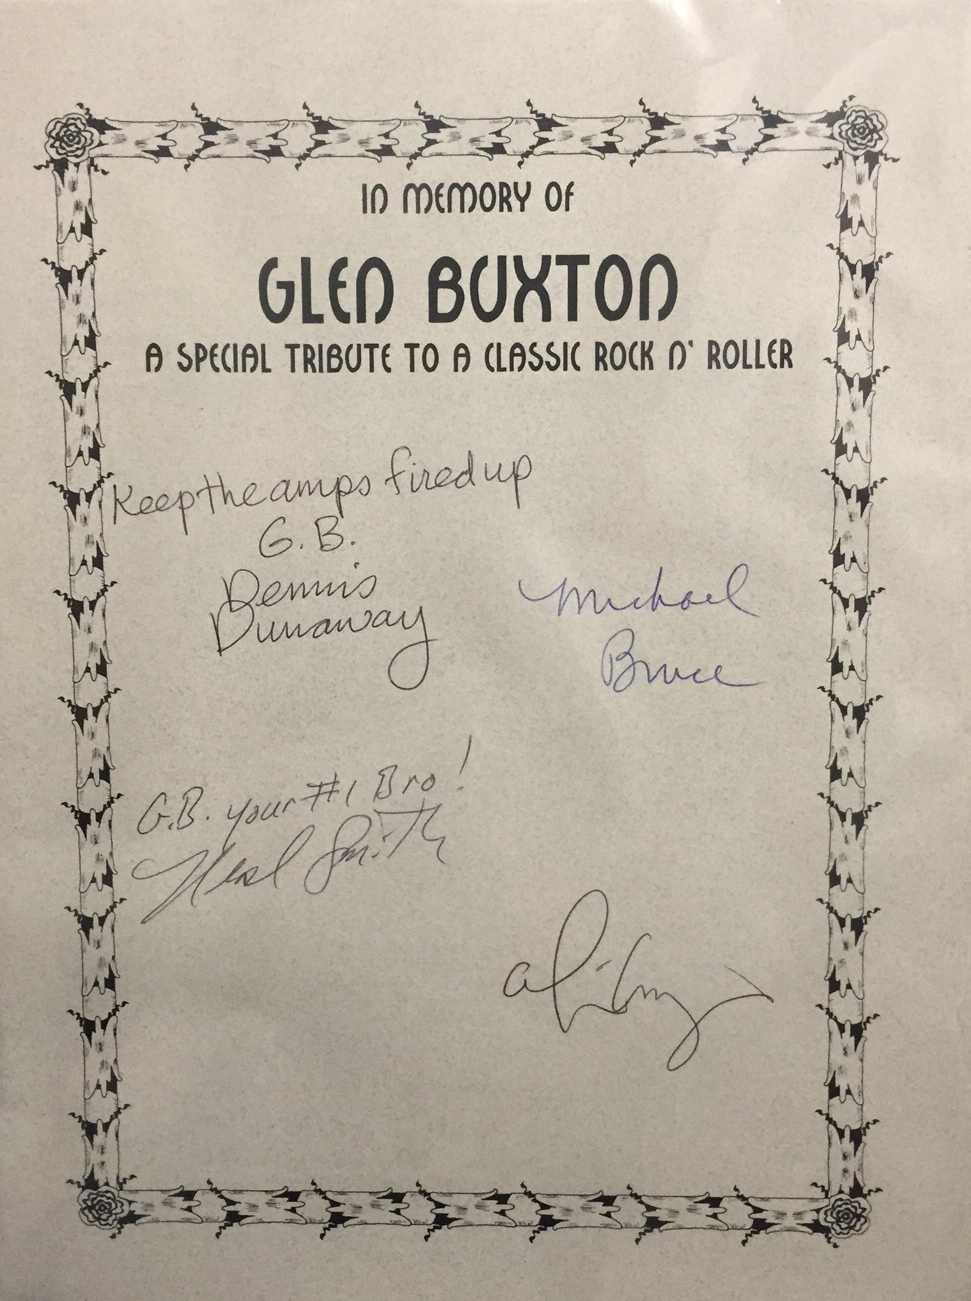 IN MEMORY OF
GLEN BUXTON
A SPECIAL TRIBUTE TO A CLASSIC ROCK N' ROLLER
Keep the amps fired up
G.B.
Dennis
Dunaway
Michael
Bruce
G.B. your #1 Bro!
Neal Smith